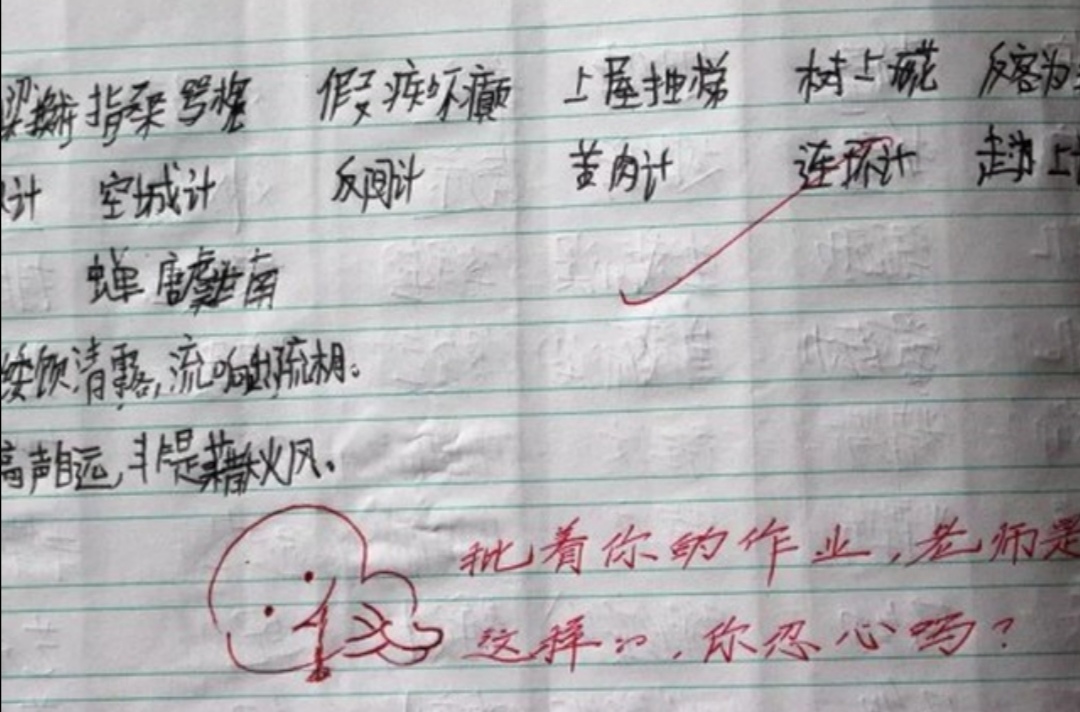 梁换柱 指桑骂槐 假痴不癫 上屋抽梯 树上开花 反客为
计 空城计 反间计 苦肉计 连环计 走为上
蝉 唐虞世南
饮清露,流响出疏桐。
高声自远,非是藉秋风。
批着你的作业,老师是
这样的,你忍心吗?